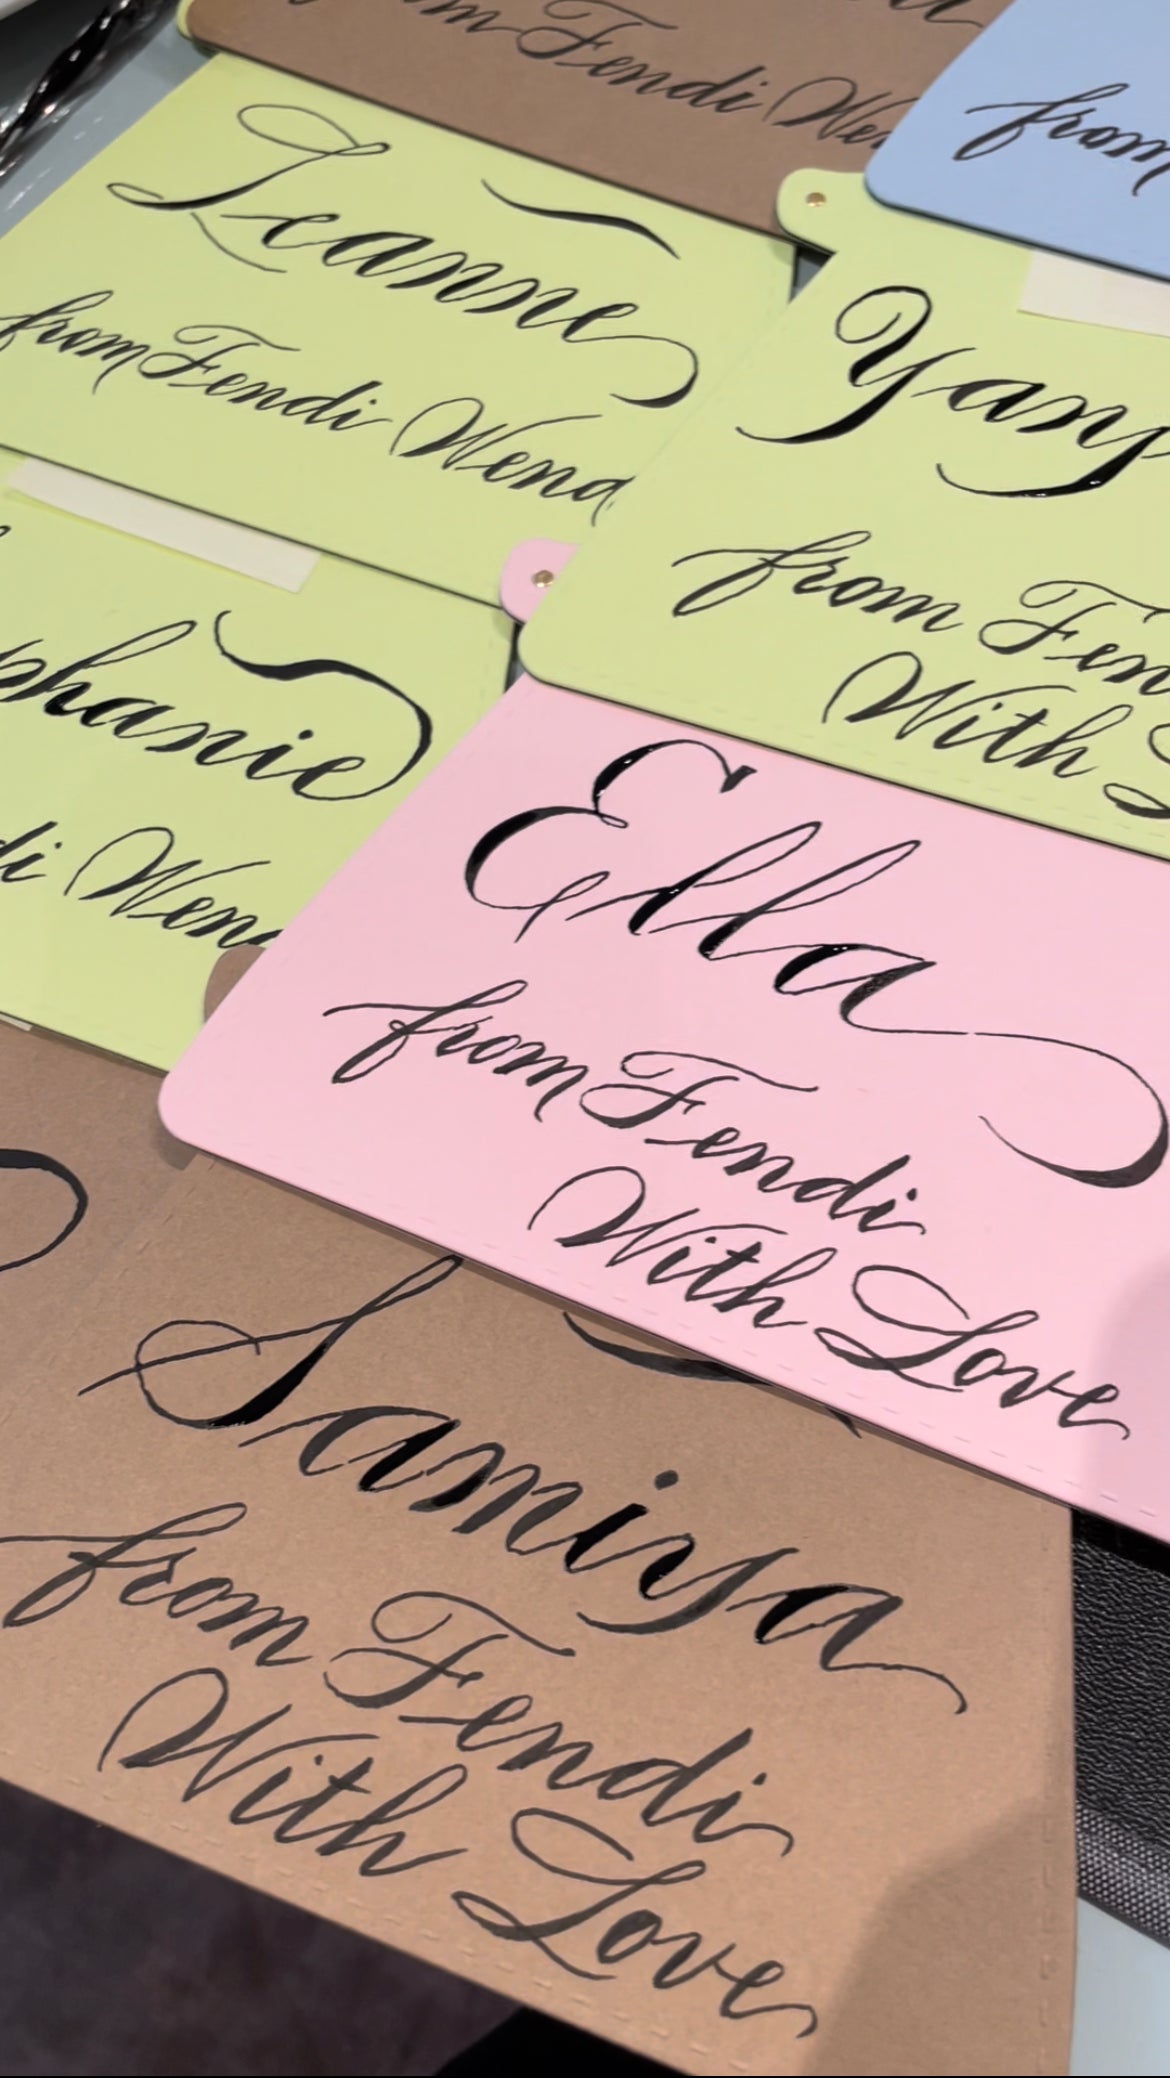 from Fendi
from
Leanne
from Fendi Wend
Yany
from Fen
With
phanie
di Wend
Ella
from Fendi
With Love
Samiya
from Fendi
With Love